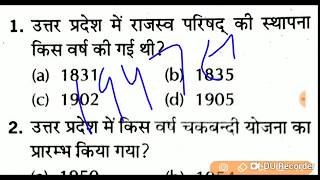 1. उत्तर प्रदेश में राजस्व परिषद् की स्थापना
किस वर्ष की गई थी?
(a) 1831 (b) 1835
(c) 1902 (d) 1905
2. उत्तर प्रदेश में किस वर्ष चकबन्दी योजना का
प्रारम्भ किया गया?